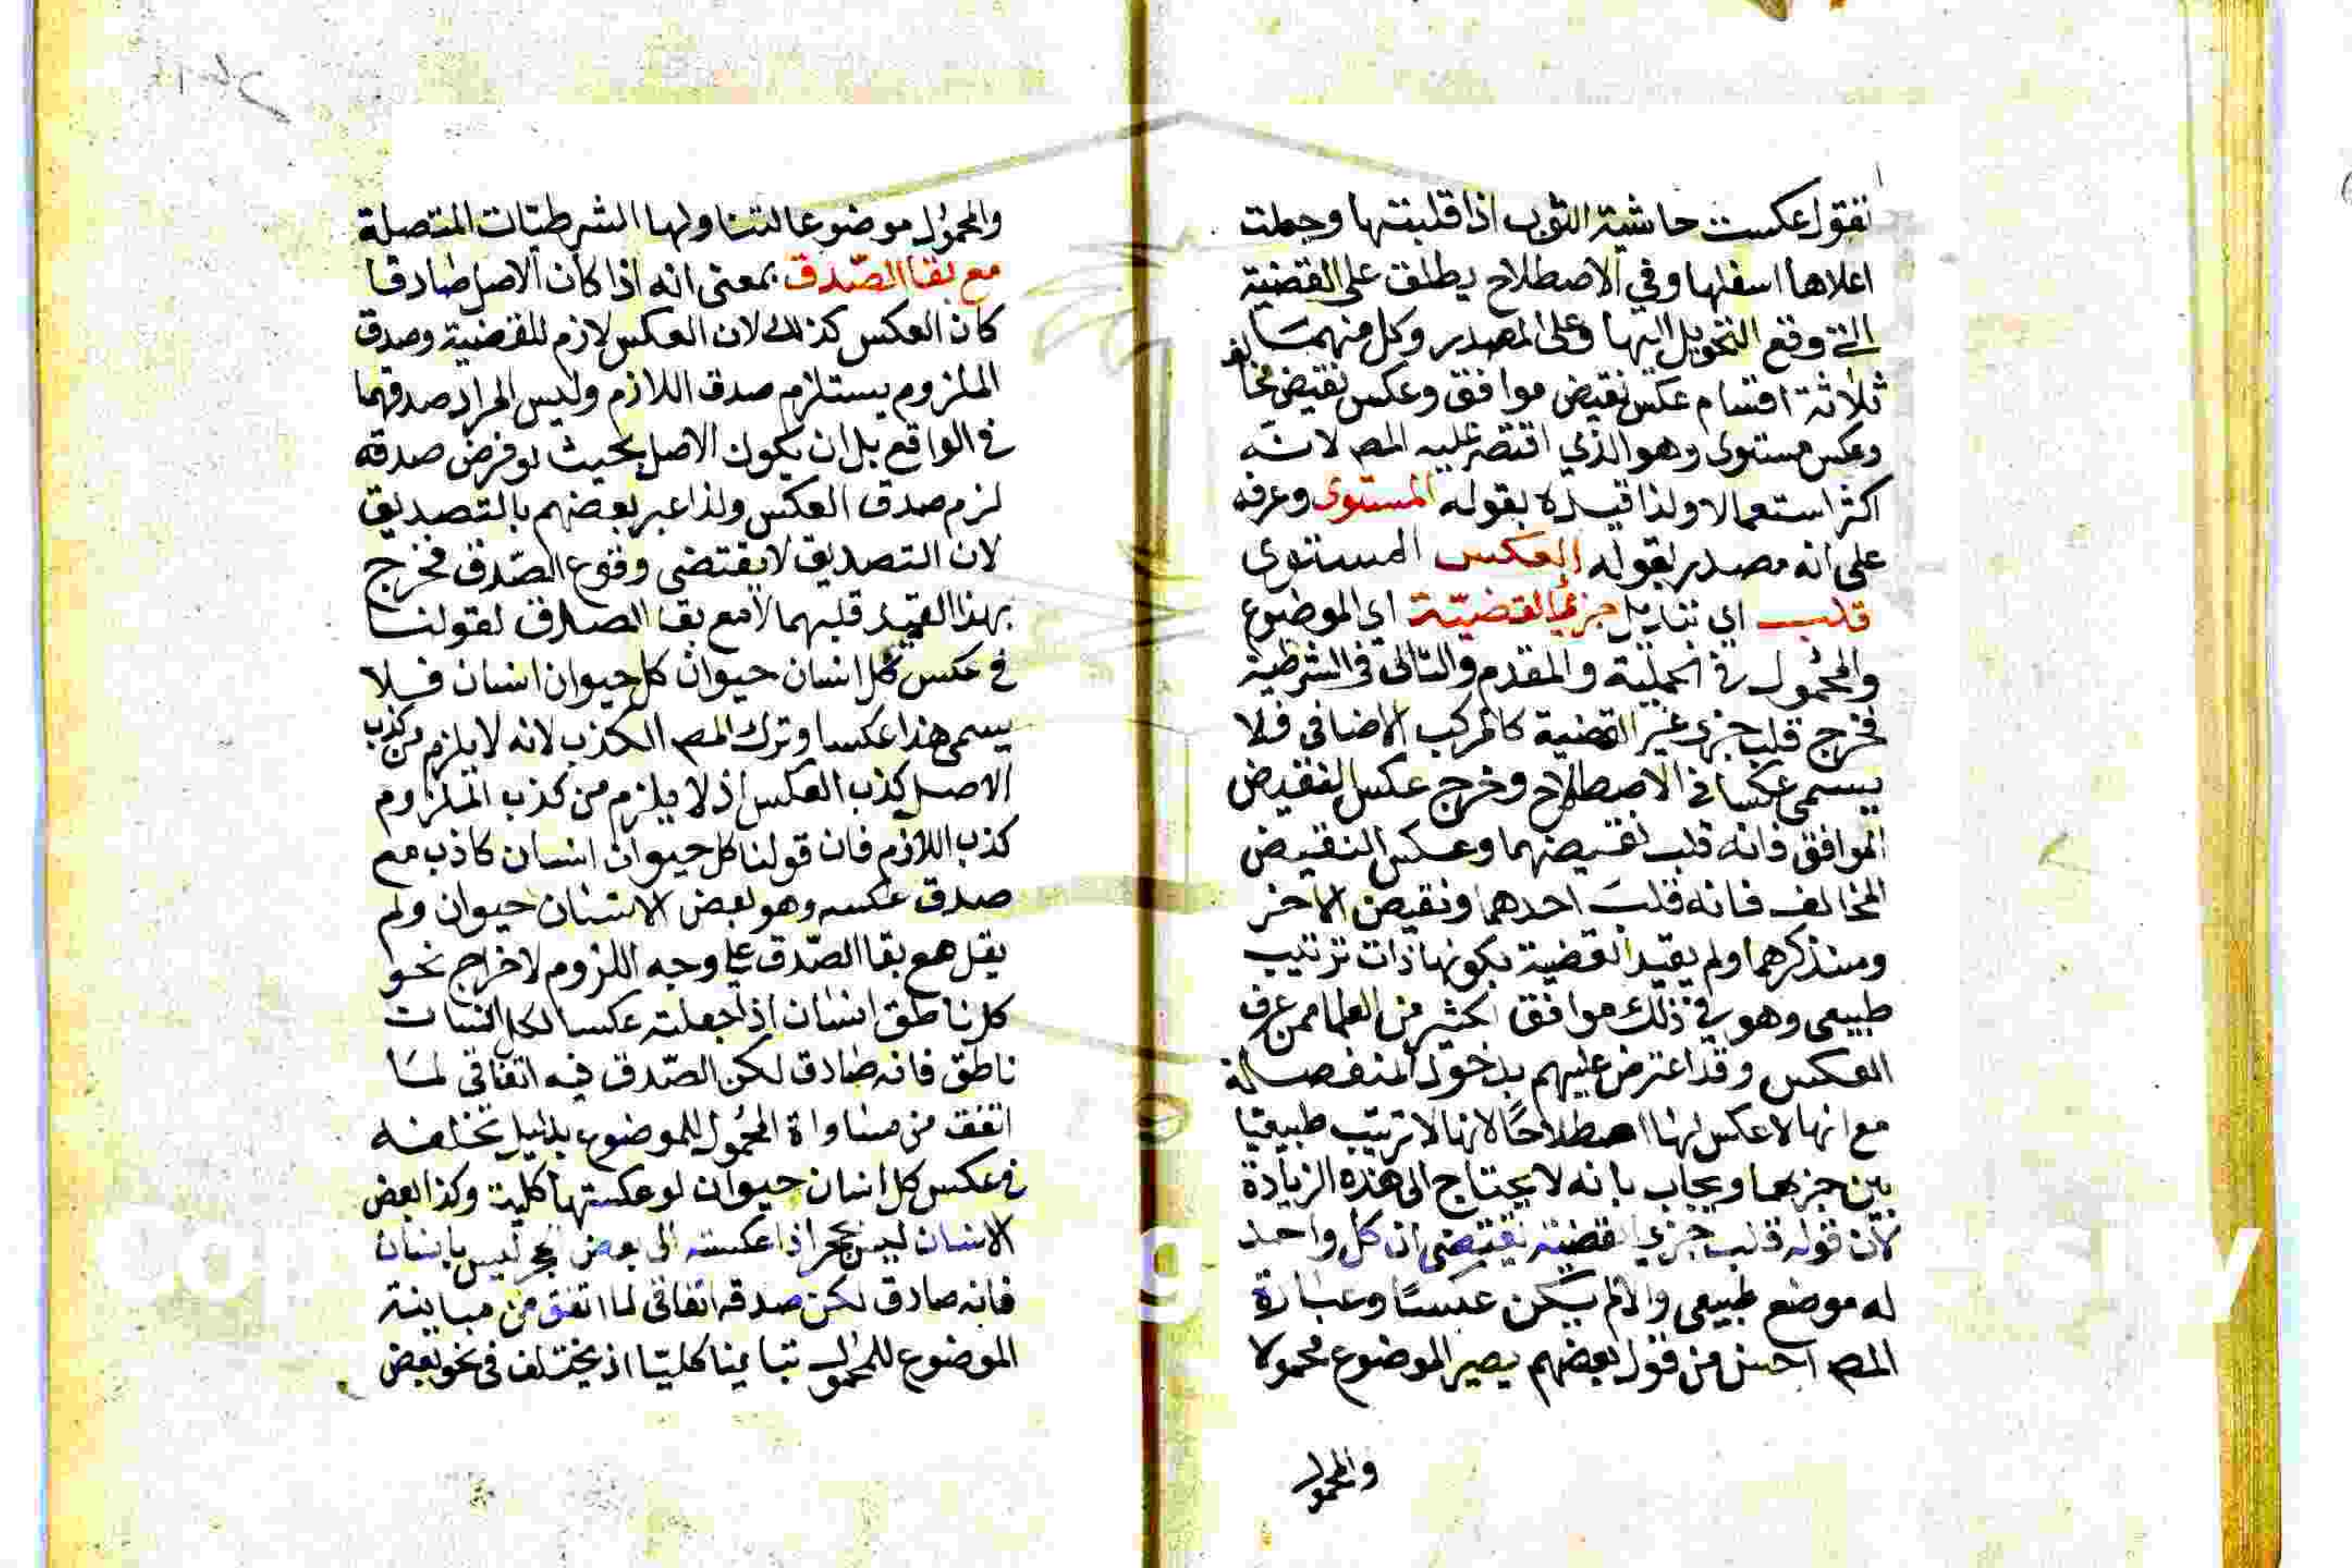 تقول عكست حاشية الثوب اذا قلبتها وجعلت
اعلاها اسفلها وفي الاصطلاح يطلق على القضية
التي وقع التحويل اليها وعلى المصدر وكل منهما
ثلاثة اقسام عكس نقيض موافق وعكس نقيض مخالف
وعكس مستوى وهو الذي اقتصر عليه المص لانه
اكثر استعمالا ولذا قيده بقوله المستوى وعرفه
على انه مصدر بقوله العكس المستوى
قلب اي تبديل جزئي القضية اي الموضوع
والمحمول في الحملية والمقدم والتالى في الشرطية
فخرج قلب جزى غير القضية كالمركب الاضافي فلا
يسمى عكسا في الاصطلاح وخرج عكس النقيض
الموافق فانه قلب نقيضهما وعكس النقيض
المخالف فانه قلب احدهما ونقيض الاخر
وسنذكرهما ولم يقيد القضية بكونها ذات ترتيب
طبيعى وهو في ذلك موافق لكثير من العلما ممن عرف
العكس وقد اعترض عليهم بدخول المنفصلة
مع انها لا عكس لها اصطلاحًا لانها لا ترتيب طبيعيا
بين جزيها ويجاب بانه لا يحتاج الى هذه الزيادة
لان قوله قلب جزي القضية يقتضى ان كل واحد
له موضع طبيعى والا لم يكن عكسًا وعبارة
المص احسن من قول بعضهم يصير الموضوع محمولا
والمحمول
والمحمول موضوعا لتناولها الشرطيات المتصلة
مع بقا الصّدق بمعنى انه اذا كان الاصل صادقا
كان العكس كذلك لان العكس لازم للقضية وصدق
الملزوم يستلزم صدق اللازم وليس المراد صدقهما
في الواقع بل ان يكون الاصل بحيث لو فرض صدقه
لزم صدق العكس ولذا عبر بعضهم بالتصديق
لان التصديق لا يقتضى وقوع الصّدق فخرج
بهذا القيد قلبهما لا مع بقا الصدق لقولنا
في عكس كل انسان حيوان كل حيوان انسان فلا
يسمى هذا عكسا وترك المص الكذب لانه لا يلزم من كذب
الاصل كذب العكس اذ لا يلزم من كذب الملزوم
كذب اللازم فان قولنا كل حيوان انسان كاذب مع
صدق عكسه وهو بعض الانسان حيوان ولم
يقل مع بقا الصّدق على وجه اللزوم لاخراج نحو
كل ناطق انسان اذا جعلته عكسا لكل انسان
ناطق فانه صادق لكن الصّدق فيه اتفاقي لما
اتفق من مساواة المحمول للموضوع بدليل تخلفه
في عكس كل انسان حيوان لو عكستها كلية وكذا بعض
الانسان ليس بحجر اذا عكسته الى بعض الحجر ليس بانسان
فانه صادق لكن صدقه اتفاقي لما اتفق من مباينة
الموضوع للمحمول تباينا كليّا اذ يختلف في نحو بعض